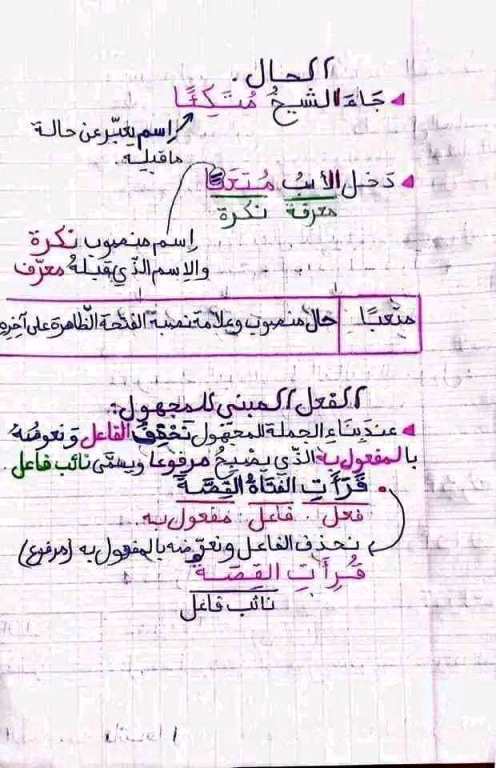 الحال.
جَاءَ الشيخُ مُتَكِئًا
إسم يعبّر عن حالة
ماقبله.
دَخل الأبُ مُتعَبًا
معرفة نكرة
إسم منصوب نكرة
والاسم الذي قبله معرّف
متعبًا حال منصوب وعلامة نصبه الفتحة الظاهرة على آخره
الفعل المبني للمجهول:
عند بناء الجملة للمجهول نَحْذِفُ الفاعل وَنعوضه
بالمفعول به الذي يصبح مرفوعا ويسمّى نائب فاعل.
قَرَأَتِ الفتاةُ القِصَّةَ
فعل فاعل مفعول به.
نحذف الفاعل ونعوّضه بالمفعول به (مرفوع)
قُرِأَتِ القِصَةُ
نائب فاعل